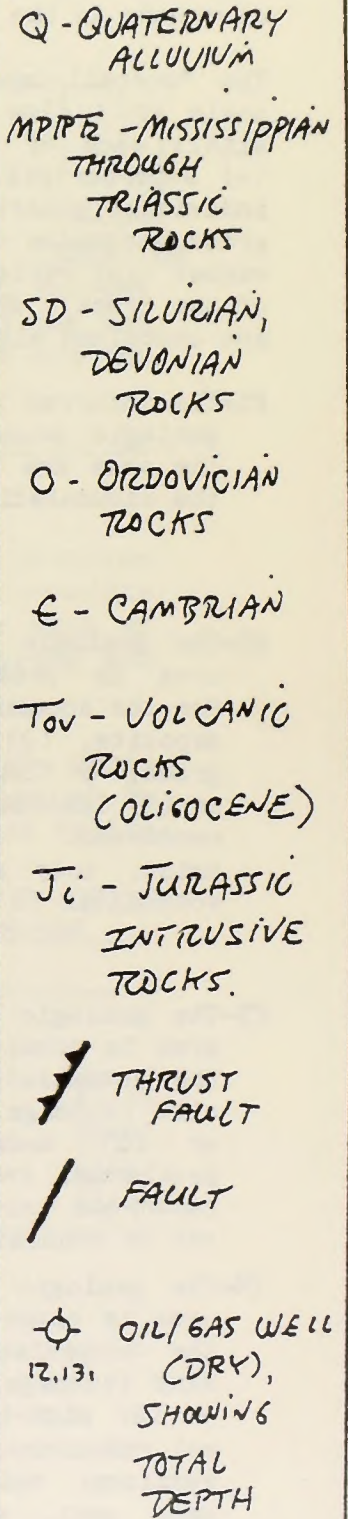 Q - QUATERNARY
ALLUVIUM
MPIPTR - MISSISSIPPIAN
THROUGH
TRIASSIC
ROCKS
SD - SILURIAN,
DEVONIAN
ROCKS
O - ORDOVICIAN
ROCKS
Є - CAMBRIAN
Tov - VOLCANIC
ROCKS
(OLIGOCENE)
Ji - JURASSIC
INTRUSIVE
ROCKS.
THRUST
FAULT
FAULT
OIL/GAS WELL
12,131 (DRY),
SHOWING
TOTAL
DEPTH